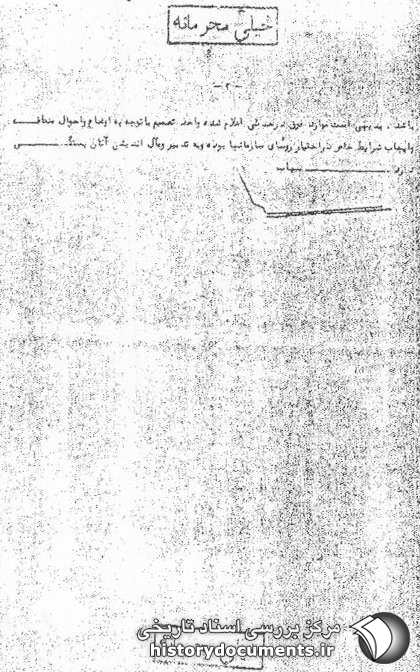 خیلی محرمانه
- ۲ -
باشد. بدیهی است موارد فوق درصد ئی اعلام شده واحد تصمیم با توجه به اوضاع واحوال منطقه
وایجاب شرایط خاص در اختیار روسای سازمانها بوده وبه تدبیر ومآل اندیشی آنان بستگی
دارد. سپاس
مرکز بررسی اسناد تاریخی
historydocuments.ir